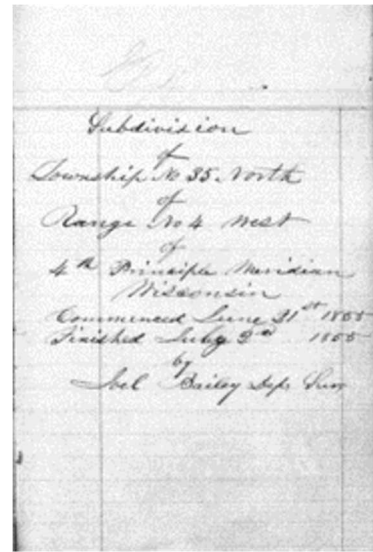 Subdivision
of
Township No 35 North
of
Range No 4 West
of
4th Principle Meridian
Wisconsin
Commenced June 21st 1855
Finished July 2d 1855
by
Joel Bailey Dep Surv